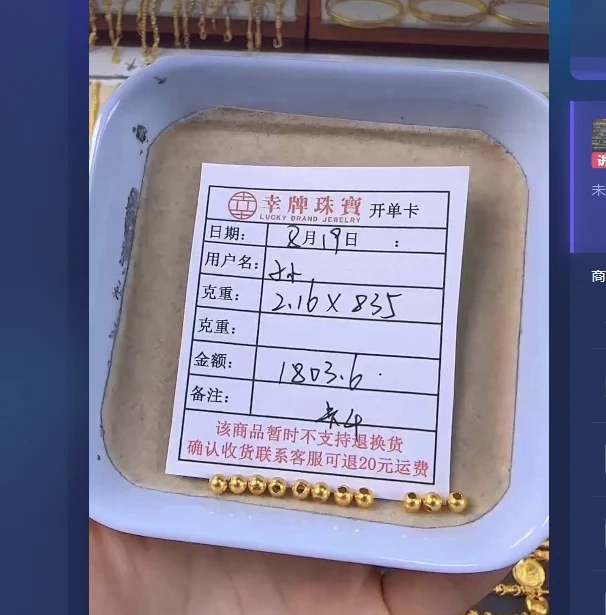 幸牌珠寶 开单卡
LUCKY BRAND JEWELRY
日期: 8月19日 :
用户名:
克重: 2.16 X 835
克重:
金额: 1803.6.
备注:
该商品暂时不支持退换货
确认收货联系客服可退20元运费
讲
未
商